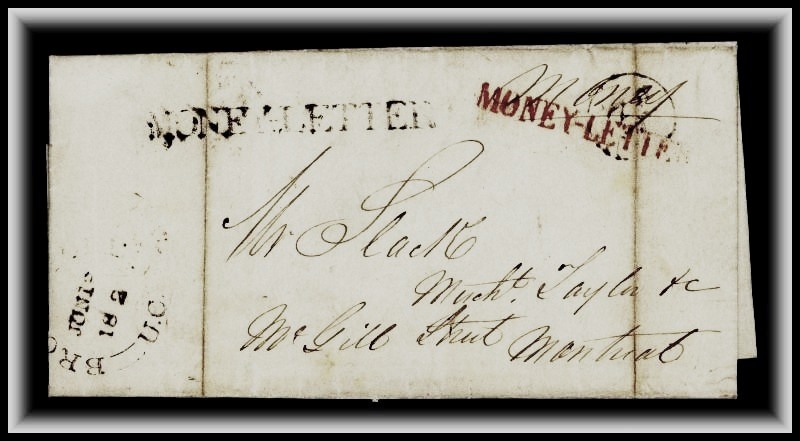 Money
MONEY-LETTER
MONEY-LETTER
Mr Slack
Mercht. Taylor &c
McGill Street Montreal
JUN 18
BRO
U.C.